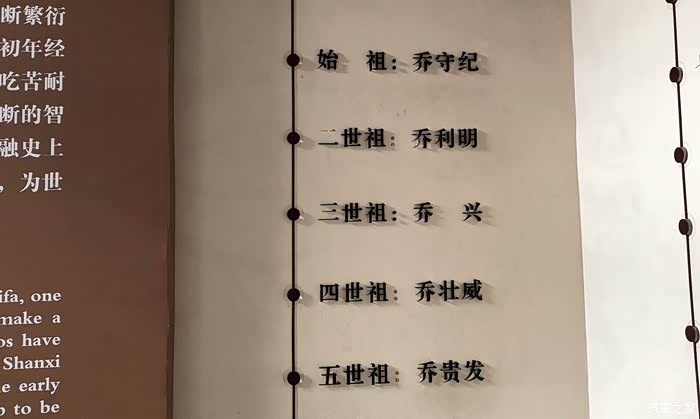 断繁衍
初年经
吃苦耐
断的智
融史上
，为世
ifa, one
make a
os have
Shanxi
e early
p to be
始 祖：乔守纪
二世祖：乔利明
三世祖：乔 兴
四世祖：乔壮威
五世祖：乔贵发
汽车之家